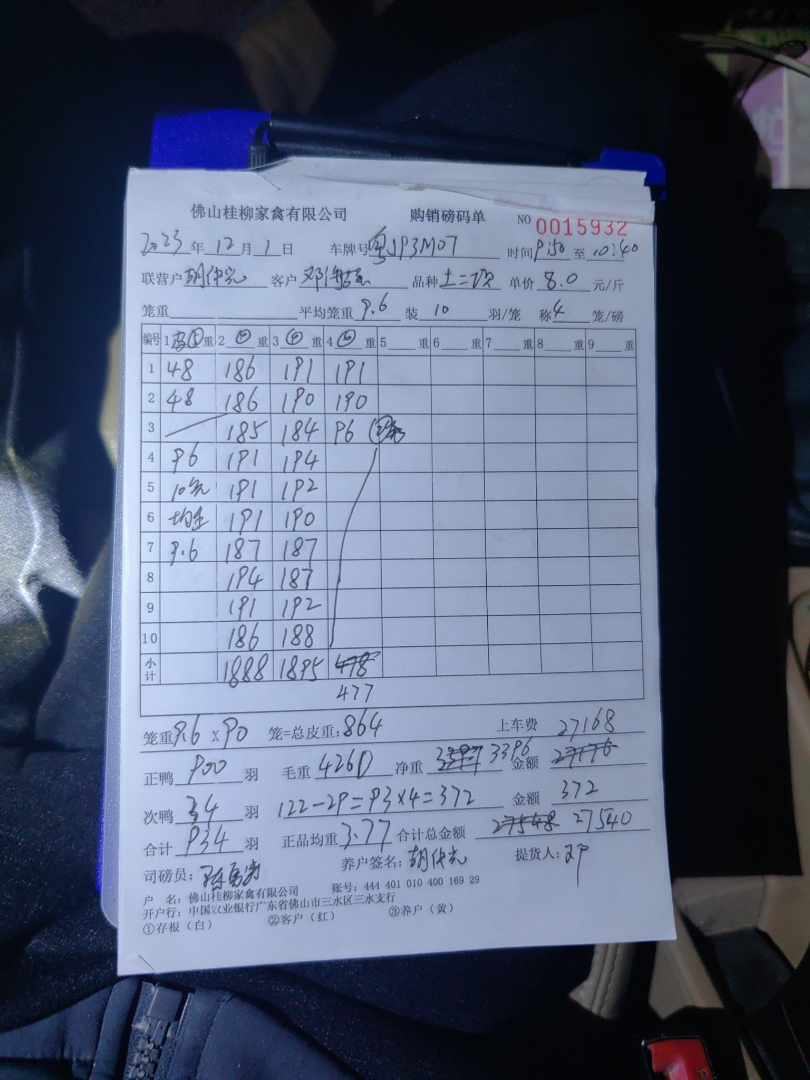 佛山桂柳家禽有限公司 购销磅码单 NO 0015932
2023年12月1日 车牌号 粤JP3M07 时间 9:50 至 10:40
联营户 胡仲光 客户 邓 品种 土二 单价 8.0 元/斤
笼重 平均笼重 9.6 装 10 羽/笼 称 4 笼/磅
编号 1 皮 重 2 ④ 重 3 ④ 重 4 ④ 重 5 重 6 重 7 重 8 重 9 重
1 48 186 191 191
2 48 186 190 190
3 185 184 96 ②
4 96 191 194
5 10 191 192
6 均重 191 190
7 9.6 187 187
8 194 187
9 191 192
10 186 188
小计 1888 1895 478
477
笼重 9.6 x 90 笼=总皮重: 864 上车费 27168
正鸭 900 羽 毛重 4260 净重 3397 3396 金额 27176
次鸭 34 羽 122-29=93x4=372 金额 372
合计 934 羽 正品均重 3.77 合计总金额 27548 27540
司磅员: 养户签名: 胡仲光 提货人: 邓
户 名: 佛山桂柳家禽有限公司 账号: 444 401 010 400 169 29
开户行: 中国农业银行广东省佛山市三水区三水支行
①存根（白） ②客户（红） ③养户（黄）